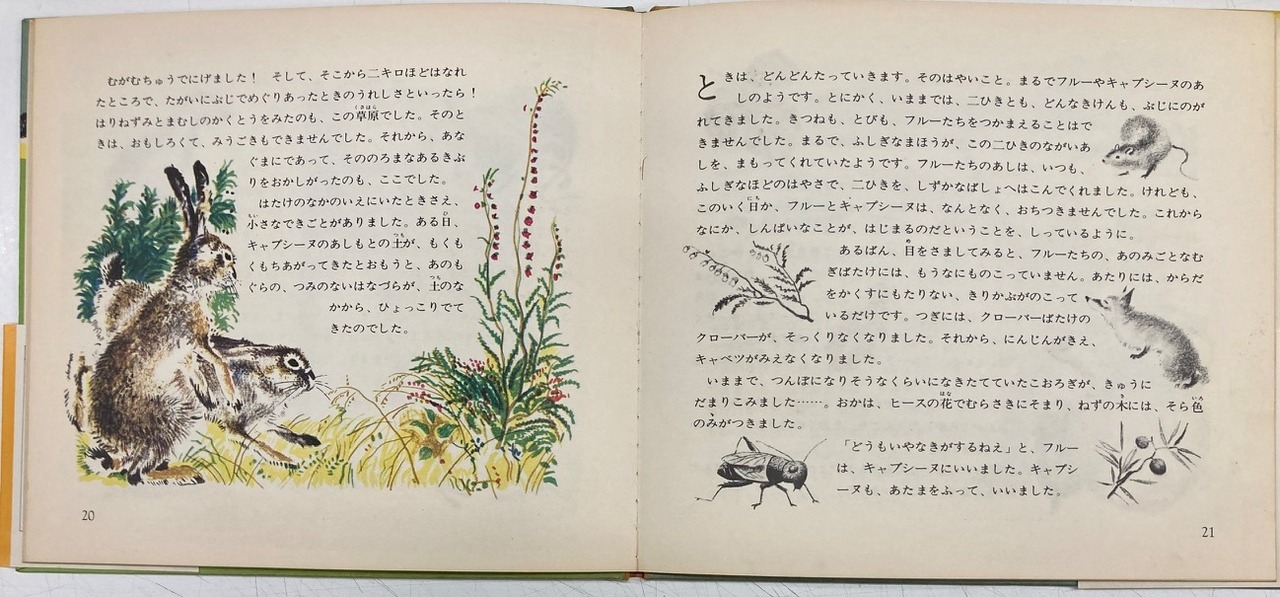 むがむちゅうでにげました！　そして、そこから二キロほどはなれ
たところで、たがいにぶじでめぐりあったときのうれしさといったら！
はりねずみとまむしのかくとうをみたのも、この草原でした。そのと
きは、おもしろくて、みうごきもできませんでした。それから、あな
ぐまにであって、そののろまなあるきぶ
りをおかしがったのも、ここでした。
はたけのなかのいえにいたときさえ、
小さなできごとがありました。ある日、
キャプシーヌのあしもとの土が、もくも
くもちあがってきたとおもうと、あのも
ぐらの、つみのないはなづらが、土のな
かから、ひょっこりでて
きたのでした。
20
ときは、どんどんたっていきます。そのはやいこと。まるでフルーやキャプシーヌのあ
しのようです。とにかく、いままでは、二ひきとも、どんなきけんも、ぶじにのが
れてきました。きつねも、とびも、フルーたちをつかまえることはで
きませんでした。まるで、ふしぎなまほうが、この二ひきのながいあ
しを、まもってくれていたようです。フルーたちのあしは、いつも、
ふしぎなほどのはやさで、二ひきを、しずかなばしょへはこんでくれました。けれども、
このいく日か、フルーとキャプシーヌは、なんとなく、おちつきませんでした。これから
なにか、しんぱいなことが、はじまるのだということを、しっているように。
あるばん、目をさましてみると、フルーたちの、あのみごとなむ
ぎばたけには、もうなにものこっていません。あたりには、からだ
をかくすにもたりない、きりかぶがのこって
いるだけです。つぎには、クローバーばたけの
クローバーが、そっくりなくなりました。それから、にんじんがきえ、
キャベツがみえなくなりました。
いままで、つんぼになりそうなくらいになきたてていたこおろぎが、きゅうに
だまりこみました……。おかは、ヒースの花でむらさきにそまり、ねずの木には、そら色
のみがつきました。
「どうもいやなきがするねえ」と、フルー
は、キャプシーヌにいいました。キャプシ
ーヌも、あたまをふって、いいました。
21